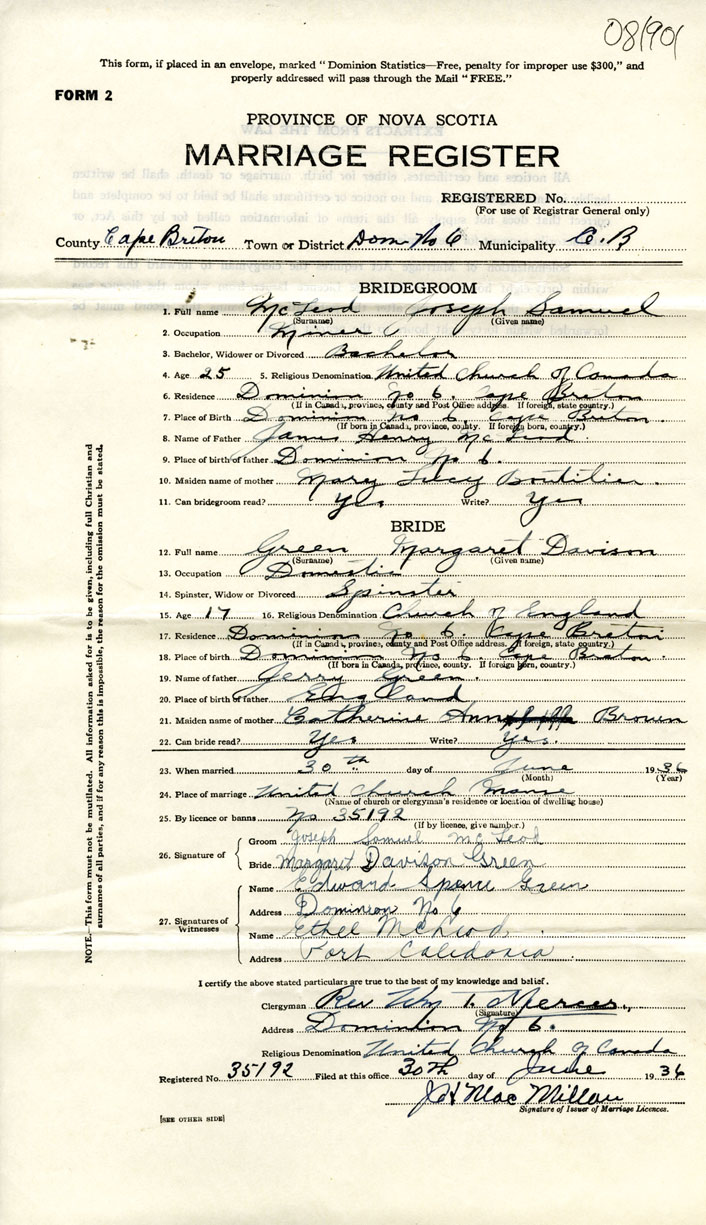 08190(
This form, if placed in an envelope, marked "Dominion Statistics—Free, penalty for improper use $300," and
properly addressed will pass through the Mail "FREE."
FORM 2
PROVINCE OF NOVA SCOTIA
MARRIAGE REGISTER
REGISTERED No.
(For use of Registrar General only)
County Cape Breton Town or District Dom. No 6 Municipality C.B
BRIDEGROOM
1. Full name McLeod Joseph Samuel
(Surname) (Given name)
2. Occupation Miner
3. Bachelor, Widower or Divorced Bachelor
4. Age 25 5. Religious Denomination United Church of Canada
6. Residence Dominion No 6. Cape Breton
(If in Canada, province, county and Post Office address. If foreign, state country.)
7. Place of Birth Dominion No 6. Cape Breton.
(If born in Canada, province, county. If foreign born, country.)
8. Name of Father James Henry McLeod
9. Place of birth of father Dominion No 6.
10. Maiden name of mother Mary Lucy Boutilier.
11. Can bridegroom read? Yes Write? Yes
BRIDE
12. Full name Green Margaret Davison
(Surname) (Given name)
13. Occupation Domestic
14. Spinster, Widow or Divorced Spinster
15. Age 17 16. Religious Denomination Church of England
17. Residence Dominion No 6. Cape Breton
(If in Canada, province, county and Post Office address. If foreign, state country.)
18. Place of birth Dominion No 6. Cape Breton.
(If born in Canada, province, county. If foreign born, country.)
19. Name of father Jerry Green.
20. Place of birth of father England
21. Maiden name of mother Catherine Ann Brown
22. Can bride read? Yes Write? Yes.
23. When married 30th day of June 1936
(Month) (Year)
24. Place of marriage United Church Manse
(Name of church or clergyman's residence or location of dwelling house)
25. By licence or banns No 35192
(If by licence, give number.)
26. Signature of
Groom Joseph Samuel McLeod
Bride Margaret Davison Green
27. Signatures of Witnesses
Name Edward Spence Green
Address Dominion No 6
Name Ethel McLeod
Address Port Caledonia.
I certify the above stated particulars are true to the best of my knowledge and belief.
Clergyman Rev Wm T. Mercer,
(Signature)
Address Dominion No 6.
Religious Denomination United Church of Canada
Registered No. 35192 Filed at this office 30th day of June 1936
J H MacMillan
Signature of Issuer of Marriage Licences.
[SEE OTHER SIDE]
NOTE.—This form must not be mutilated. All information asked for is to be given, including full Christian and
surnames of all parties, and if for any reason this is impossible, the reason for the omission must be stated.